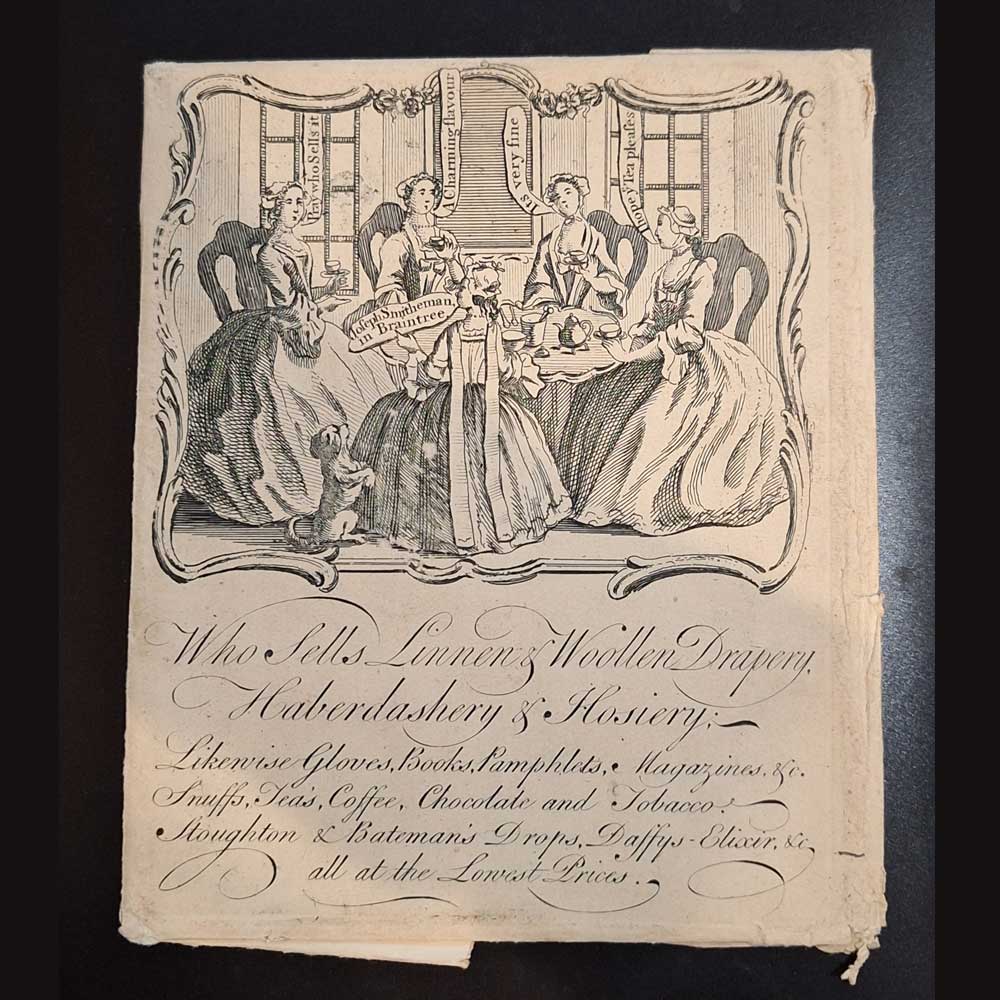 Pray who Sells it
A Charming flavour
its very fine
I hope yͤ Tea pleases
Joseph Smitheman,
in Braintree.
Who Sells Linnen & Woollen Drapery,
Haberdashery & Hosiery;
Likewise Gloves, Books, Pamphlets, Magazines, &c.
Snuffs, Tea's, Coffee, Chocolate and Tobacco:
Stoughton & Bateman's Drops, Daffys-Elixir, &c,
all at the Lowest Prices.